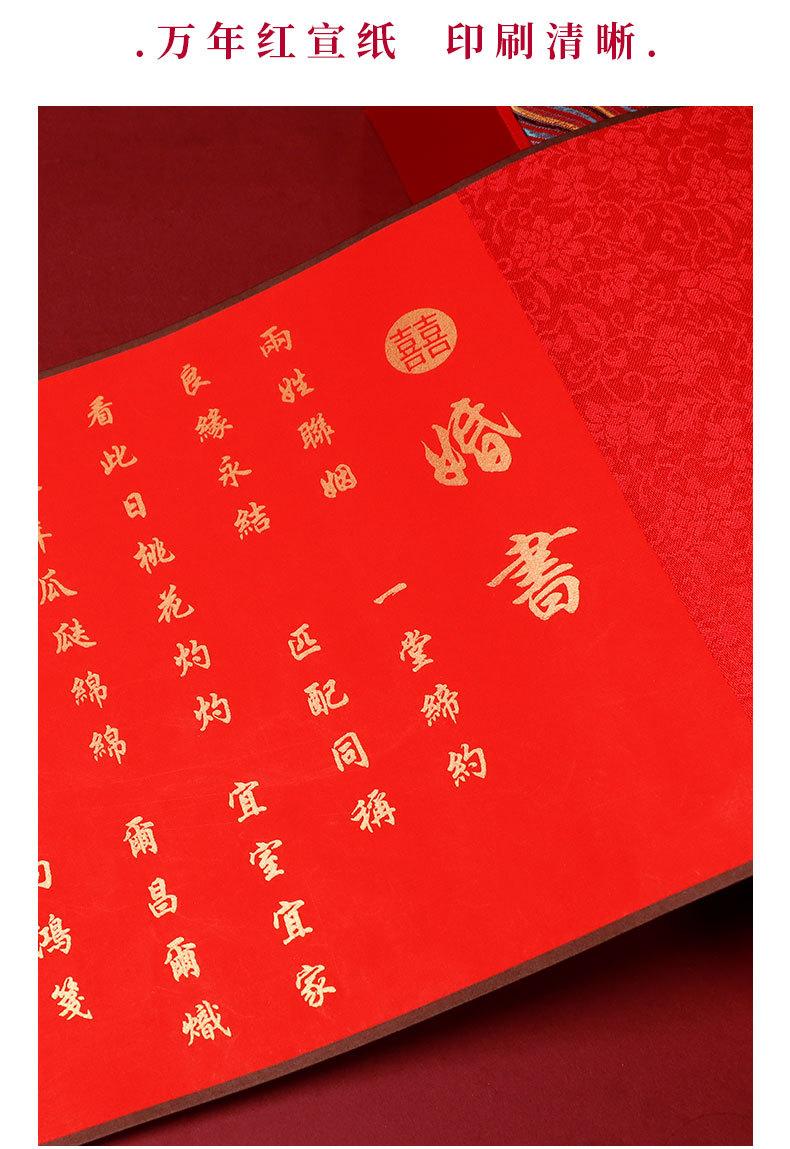 .万年红宣纸 印刷清晰.
囍
婚書
兩姓聯姻 一堂締約
良緣永結 匹配同稱
看此日桃花灼灼 宜室宜家
瓜瓞綿綿 爾昌爾熾
鴻箋